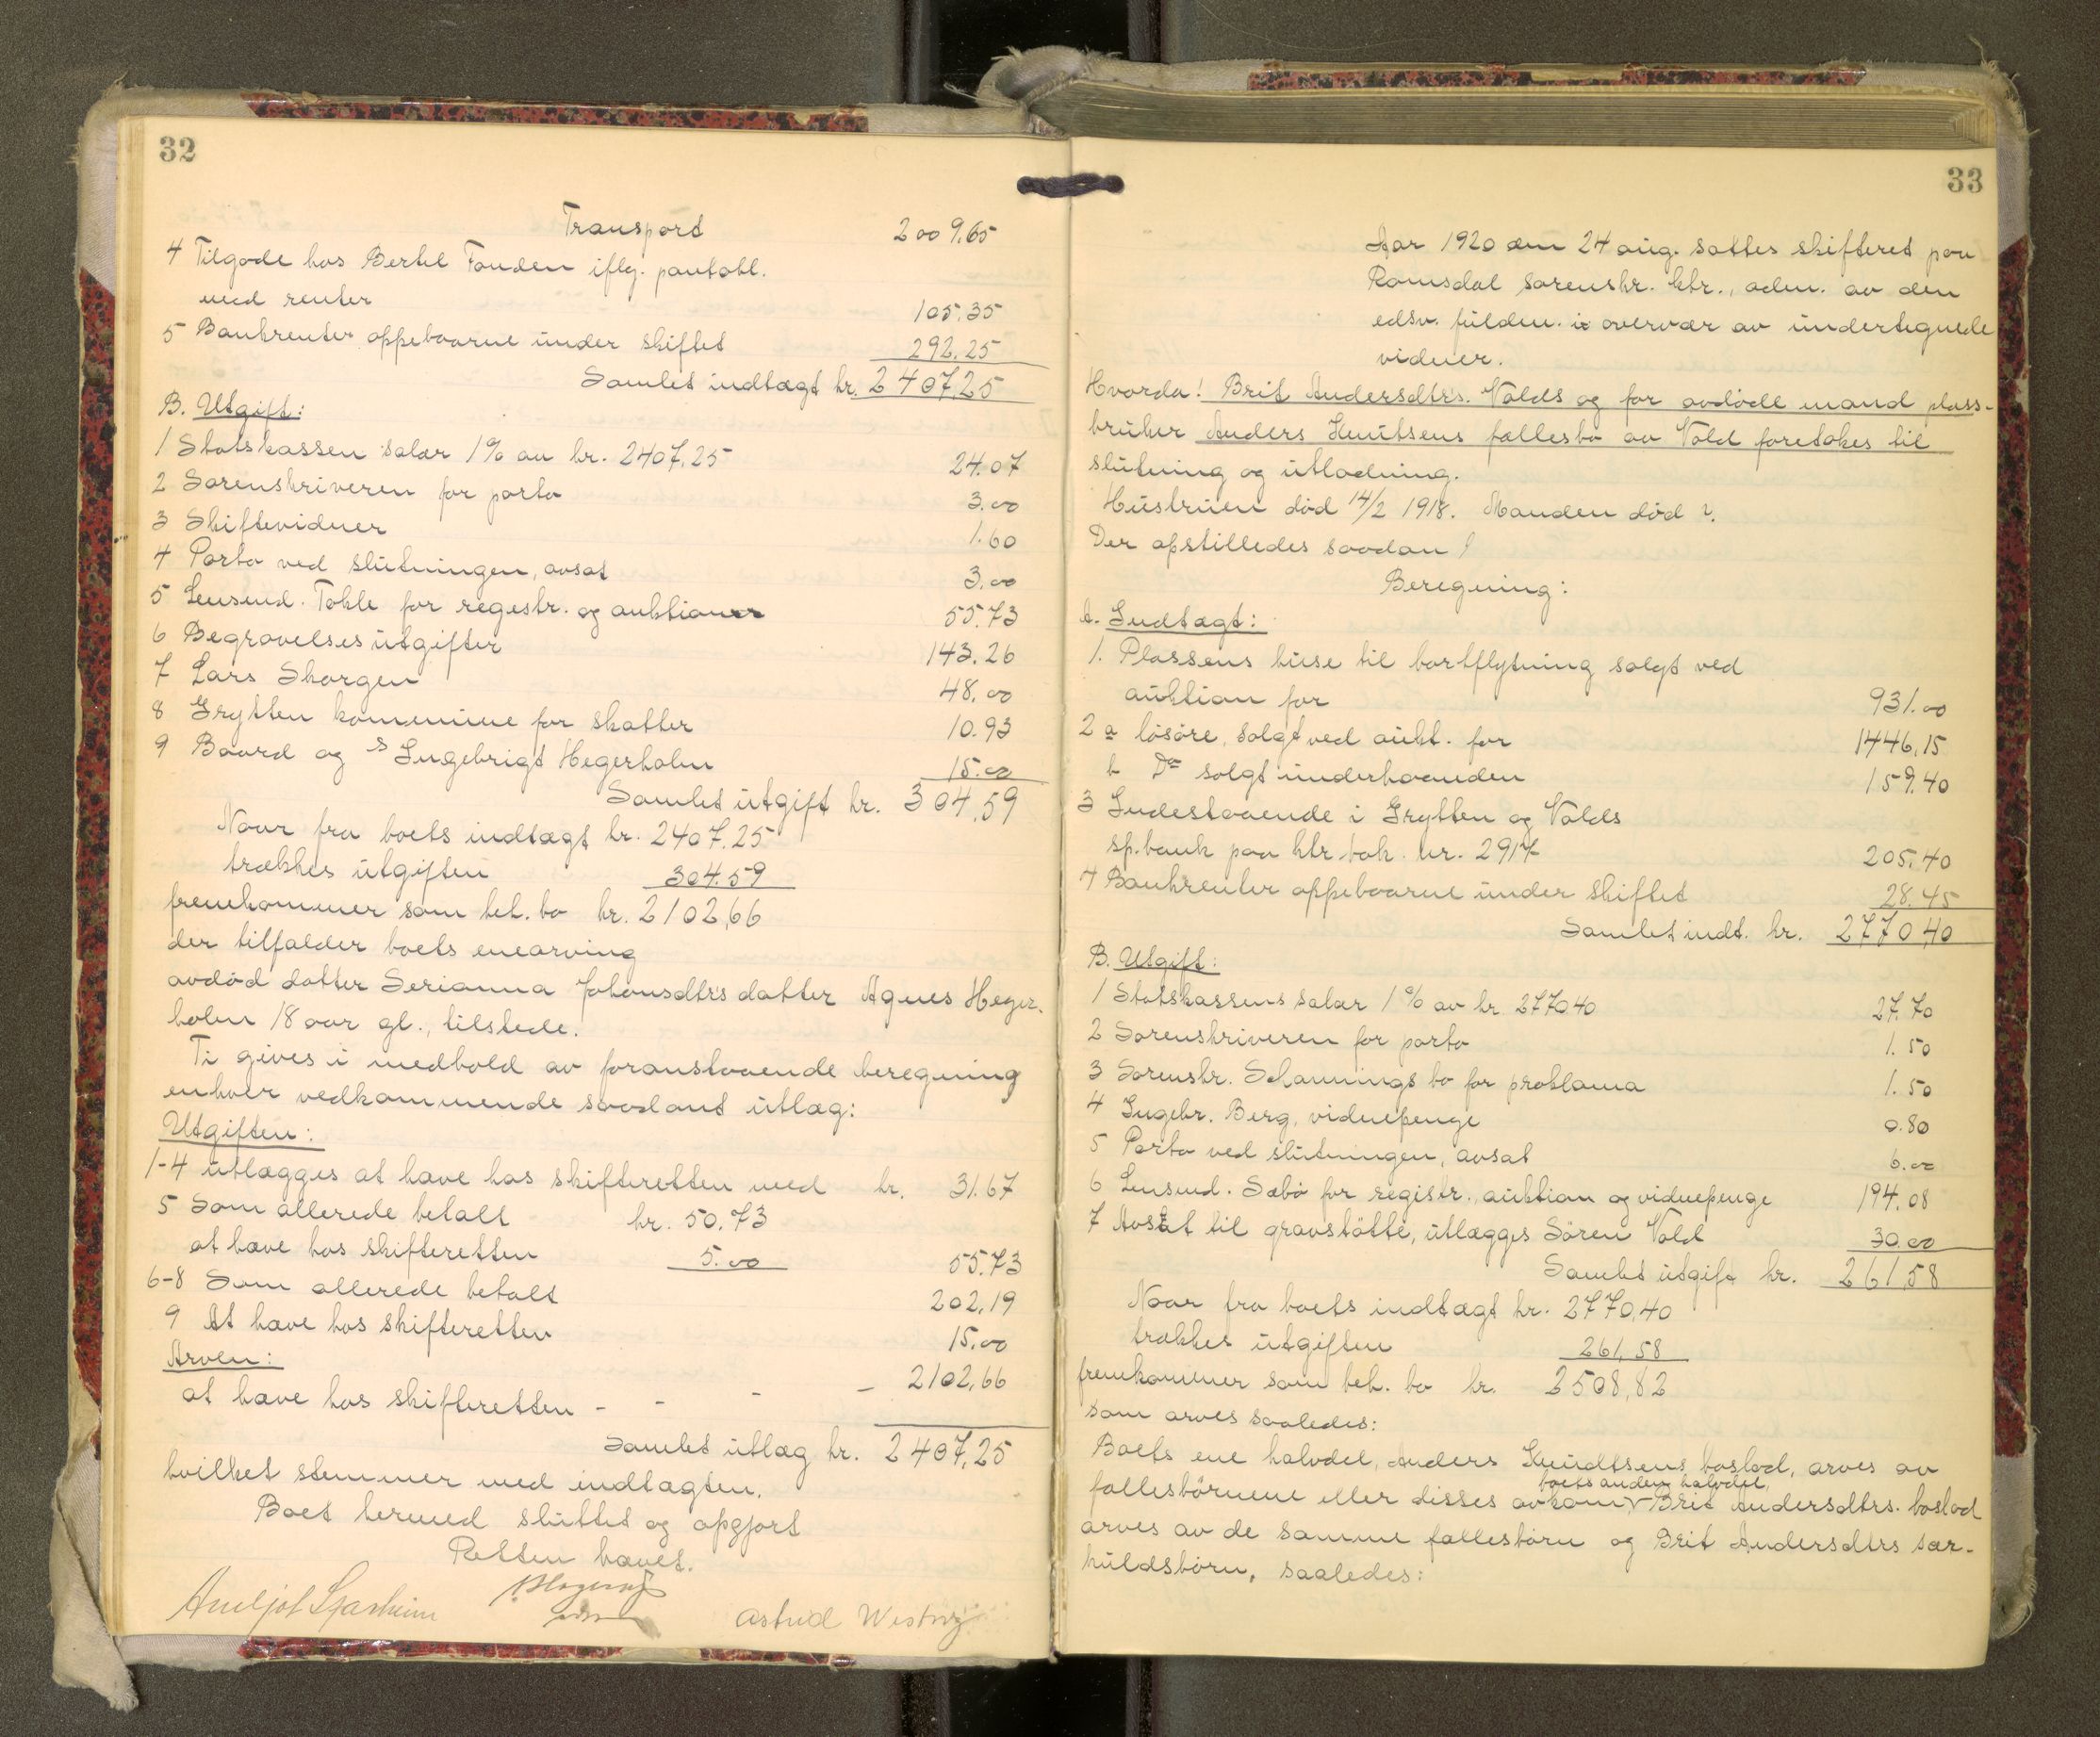 32
Transport 2009.65
4 Tilgode hos Bertel Fonden iflg. pantobl.
med renter 105.35
5 Bankrenter oppebaarne under skiftet 292.25
Samlet indtægt kr. 2407,25
B. Utgift:
1 Statskassen salær 1% av kr. 2407.25 24.07
2 Sorenskriveren for porto 3.00
3 Skiftevidner 1.60
4 Porto ved slutningen, avsat 3.00
5 Lensmd. Tokle for regestr. og auktioner 55.73
6 Begravelsesutgifter 143.26
7 Lars Skorgen 48.00
8 Grytten kommune for skatter 10.93
9 Baard og Ingebrigt Hegerholm 15.00
Samlet utgift kr. 304,59
Naar fra boets indtægt kr. 2407.25
trækkes utgiften 304.59
fremkommer som beh. bo kr. 2102,66
der tilfalder boets enearving
avdød datter Serianna Johansdtrs datter Agnes Heger-
holm 18 aar gl., tilstede.
Ti gives i medhold av foranstaaende beregning
enhver vedkommende saadant utlæg:
Utgiften:
1-4 utlægges at hæve hos skifteretten med kr. 31.67
5 Som allerede betalt kr. 50.73
at hæve hos skifteretten 5.00 55.73
6-8 Som allerede betalt 202,19
9 At hæve hos skifteretten 15.00
Arven:
at hæve hos skifteretten - - - - 2102,66
Samlet utlæg kr. 2407,25
hvilket stemmer med indtægten.
Boet hermed sluttet og opgjort
Retten hævet.
Astrid
33
Aar 1920 den 24 aug. sattes skifteret paa
Romsdal sorenskr. ktr., adm. av den
edsv. fuldm. i overvær av undertegnede
vidner.
Hvorda: Brit Andersdtrs. Volds og før avdøde mand plass-
bruker Anders Knutsens fællesbo av Vold foretokes til
slutning og utlodning.
Hustruen død 14/2 1918. Manden død ?.
Der opstilledes saadan:
Beregning:
A. Indtægt:
1. Plassens huse til bortflytning solgt ved
auktion for 931.00
2 a løsøre, solgt ved aukt. for 1446.15
b Do solgt underhaanden 159.40
3 Indestaaende i Grytten og Volds
sp.bank paa ktr. bok. nr. 2917 205.40
4 Bankrenter oppebaarne under skiftet 28.45
Samlet indt. kr. 2770.40
B. Utgift:
1 Statskassens salær 1% av kr. 2770.40 27.70
2 Sorenskriveren for porto 1.50
3 Sorenskr. Schannings bo for proklama 1.50
4 Ingebr. Berg, vidnepenge 0.80
5 Porto ved slutningen, avsat 6.00
6 Lensmd. Sæbø for registr., auktion og vidnepenge 194.08
7 Avsat til gravstötte, utlægges Sören Vold 30.00
Samlet utgift kr. 261,58
Naar fra boets indtægt kr. 2770,40
trækkes utgiften 261,58
fremkommer som beh. bo kr. 2508,82
som arves saaledes:
Boets ene halvdel, Anders Knudtsens boslod, arves av
boets anden halvdel,
fællesbörnene eller disses avkom, Brit Andersdtrs. boslod
arves av de samme fællesbörn og Brit Andersdtrs sær-
kuldsbörn, saaledes: